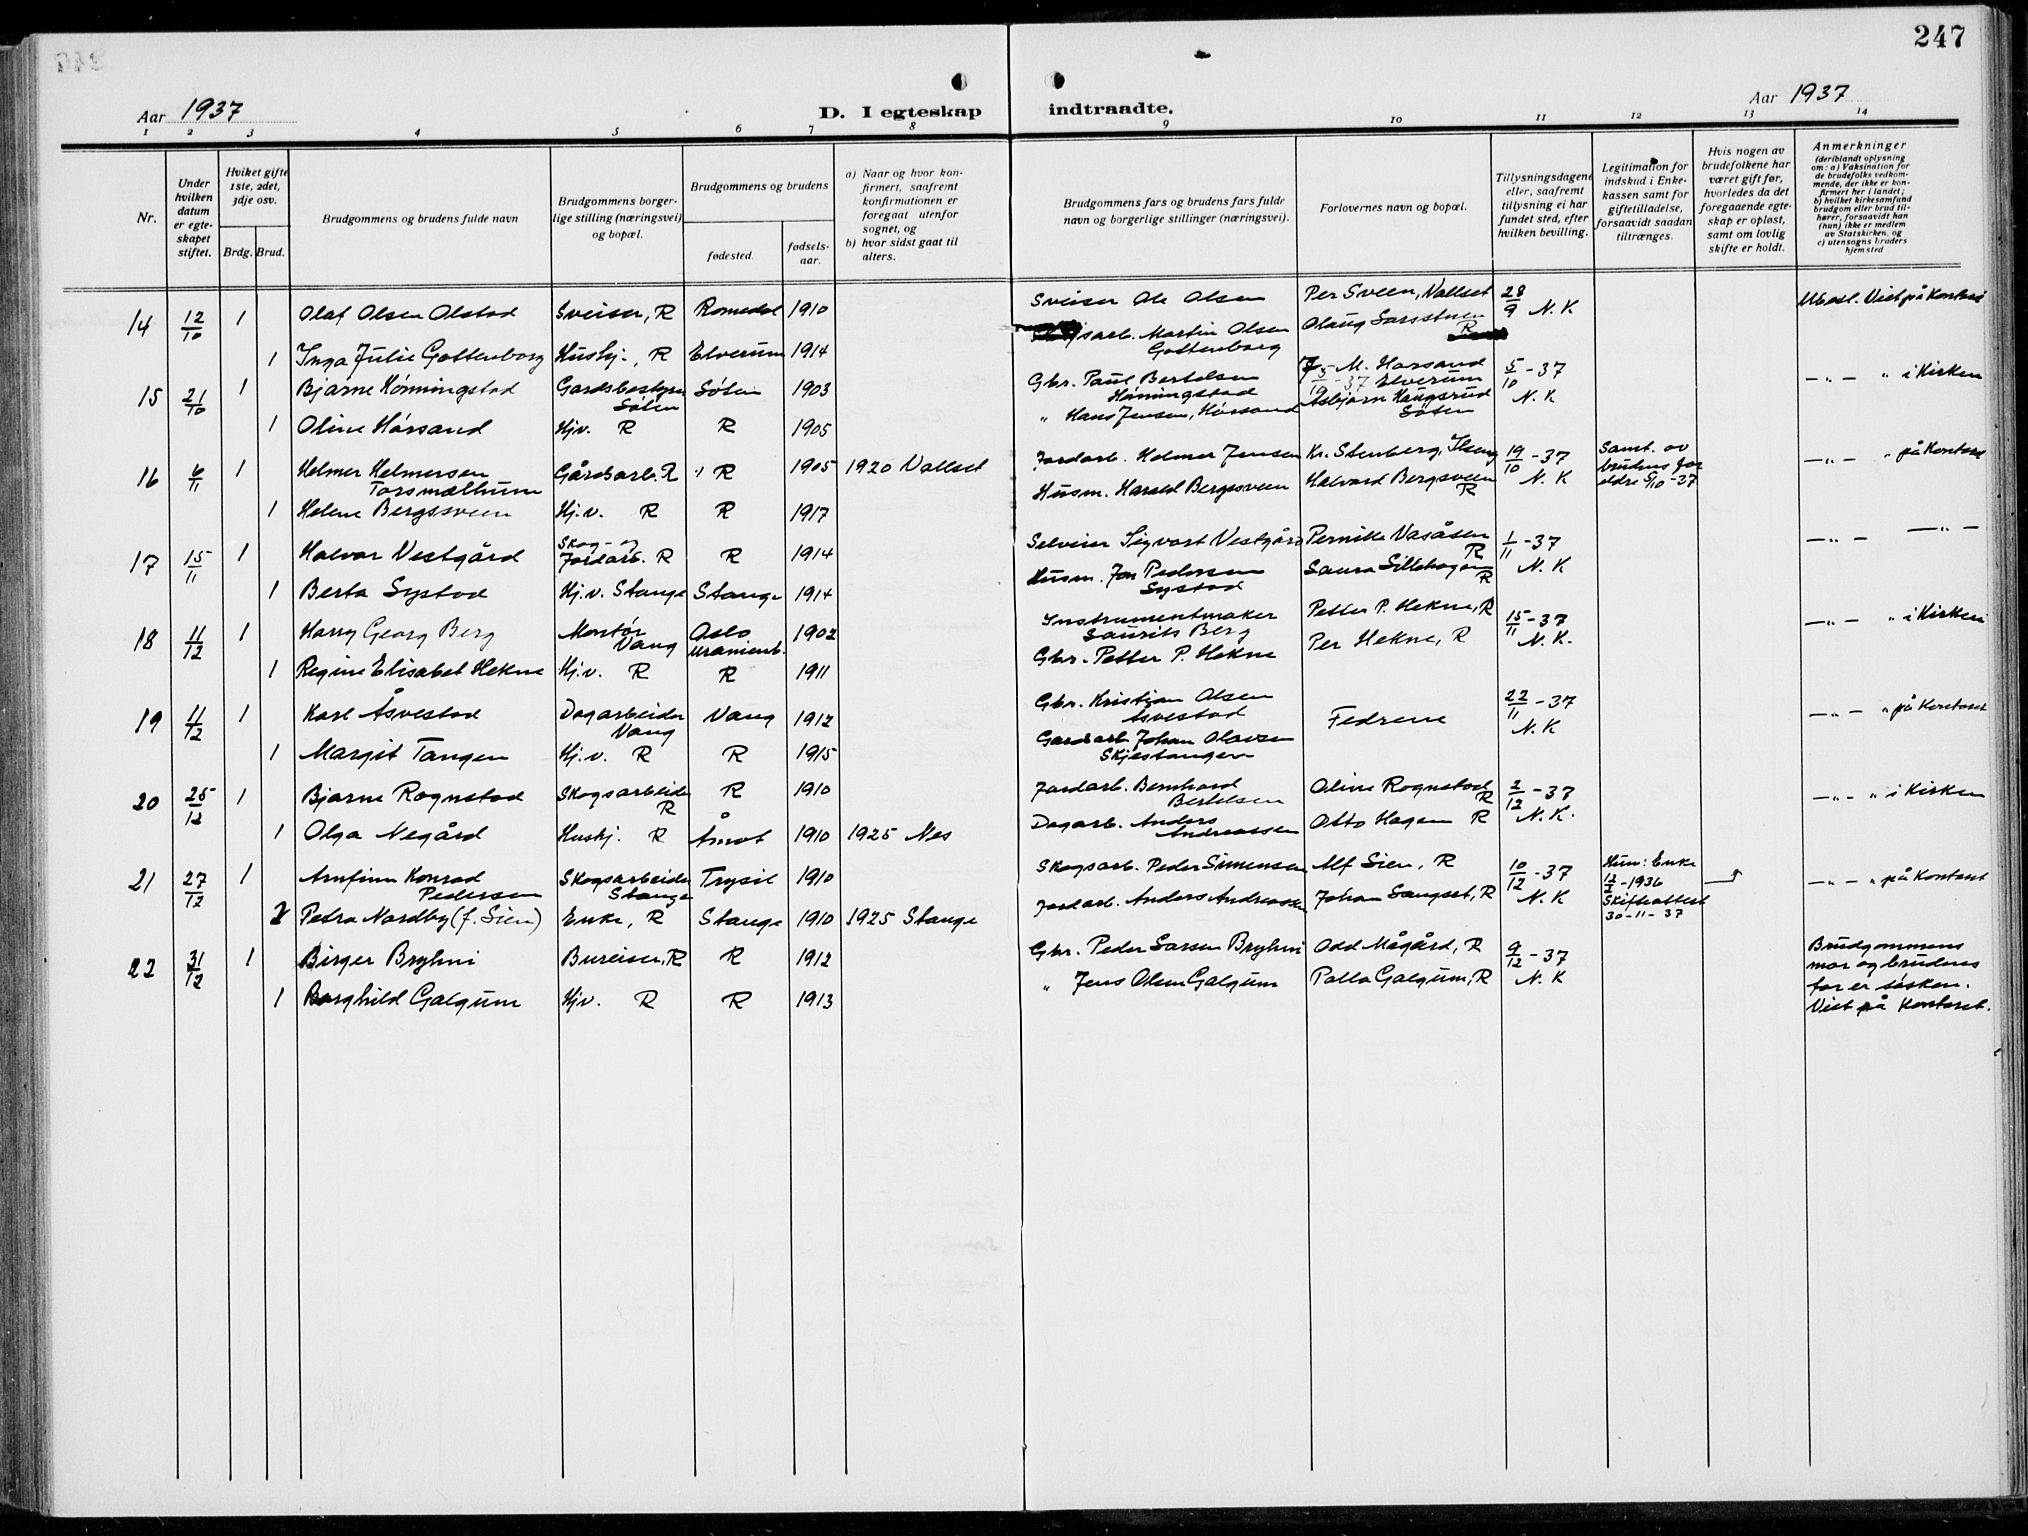 247
Aar 1937
D. I egteskap indtraadte.
Aar 1937
1 2 3 4 5 6 7 8 9 10 11 12 13 14
Nr.
Under hvilken datum er egteskapet stiftet.
Hvilket gifte 1ste, 2det, 3dje osv.
Brdg. Brud.
Brudgommens og brudens fulde navn
Brudgommens borgerlige stilling (næringsvei) og bopæl.
Brudgommens og brudens
fødested.
fødselsaar.
a) Naar og hvor konfirmert, saafremt konfirmationen er foregaat utenfor sognet, og
b) hvor sidst gaat til alters.
Brudgommens fars og brudens fars fulde navn og borgerlige stillinger (næringsvei).
Forlovernes navn og bopæl.
Tillysningsdagene eller, saafremt tillysning ei har fundet sted, efter hvilken bevilling.
Legitimation for indskud i Enkekassen samt for giftetilladelse, forsaavidt saadan tiltrænges.
Hvis nogen av brudefolkene har været gift før, hvorledes da det foregaaende egteskap er opløst, samt om lovlig skifte er holdt.
Anmerkninger
(deriblandt oplysning om: a) Vaksination for de brudefolks vedkommende, der ikke er konfirmert her i landet; b) hvilket kirkesamfund brudgom eller brud tilhører, forsaavidt han (hun) ikke er medlem av Statskirken, og c) utensogns bruders hjemsted
14 12/10 1 Olaf Olsen Olstad Sveiser, R Romedal 1910 Sveiser Ole Olsen Per Sveen, Vallset 28/9 N. K Ubesl. Viet på Kontoret
1 Inga Julie Gottenborg Hushj., R Elverum 1914 Martin Olsen Gottenborg Olaug R
15 21/10 1 Bjarne Hønningstad Gardsbestyrer Sølen Sølen 1903 Gbr. Paul Bertelsen Hønningstad M. Horsand Elverum 5/10 -37 N. K — „ — „ i Kirken
1 Oline Hørsand Hjv. R R 1905 „ Hans Jensen, Hørsand Asbjørn Haugsrud Sølen
16 6/11 1 Helmer Helmersen Torsmælhum Gårdsarb. R R 1905 1920 Vallset Jordarb. Helmer Jensen Kr. Stenberg, Ilseng 19/10 -37 N. K Samt. av brudens foreldre 5/10 -37 — „ — „ på Kontoret
1 Helene Bergsveen Hj.v. R R 1917 Husm. Harald Bergsveen Halvard Bergsveen R
17 15/11 1 Halvar Vestgård Skog- og Jordarb. R R 1914 Selveier Sigvart Vestgård Pernille Vasåsen R 1/11 -37 N. K — „ — — „ —
1 Berta Systad Hj.v. Stange Stange 1914 Husm. Jon Pedersen Systad Laura Sillehagen R
18 11/12 1 Harry Georg Berg Montør Vang Oslo Uranienb. 1902 Instrumentmaker Laurits Berg Petter P. Hekne, R 15/11 -37 N. K. — „ — „ i Kirken
1 Regine Elisabet Hekne Hj.v. R R 1911 Gbr. Petter P. Hekne Per Hekne, R
19 11/12 1 Karl Åsvestad Dagarbeider Vang Vang 1912 Gbr. Kristian Olsen Åsvestad Fedrene 22/11 -37 N. K — „ — „ på Kontoret
1 Margit Tangen Hj.v. R R 1915 Gardsarb. Johan Olavsen Skjestangen
20 25/12 1 Bjarne Rognstad Skogsarbeider R R 1910 Jordarb. Bernhard Bertelsen Oline Rognstad R 2/12 -37 N. K. — „ — „ i Kirken
1 Olga Negård Hushj. R Åmot 1910 1925 Nes Dagarb. Anders Andreassen Otto Hagen R
21 27/12 1 Arnfinn Konrad Pedersen Skogsarbeider Stange Trysil 1910 Skogsarb. Peder Simensen Alf Sien, R 10/12 -37 N. K Hun: Enke 12/2 -1936 Skifteattest 30-11-37 — „ — „ på Kontoret
2 Petra Nordby (f. Sien) Enke, R Stange 1910 1925 Stange Jordarb. Anders Andreassen Johan Sangset, R
22 31/12 1 Birger Bryhni Bureiser, R R 1912 Gbr. Peder Larsen Bryhni Odd Mågård, R 9/12 -37 N. K Brudgommens mor og brudens far er søsken. Viet på Kontoret.
1 Borghild Galgum Hjv. R R 1913 „ Jens Olsen Galgum Palle Galgum, R